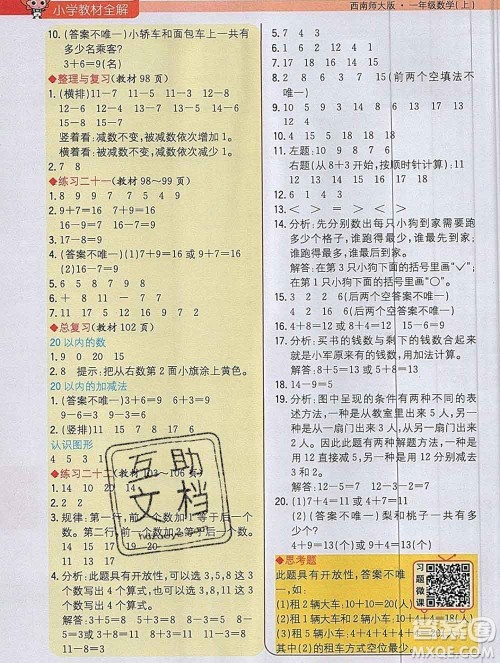 小学教材全解
西南师大版·一年级数学(上)
10. (答案不唯一)小轿车和面包车上一共有
多少名乘客?
3+6=9(名)
◆整理与复习(教材98页)
1. (横排)11-7 11-8 11-9 12-5
12-6 12-7 13-4 13-5 13-6
15-8 15-7
竖着看:减数不变,被减数依次增加1。
横着看:被减数不变,减数依次减少1。
2. 7 8
◆练习二十一(教材98~99页)
1. 8 9 9 7 7 5 9 4
2. 9+7=16 7+9=16 16-7=9
16-9=7
3. 17-8=9
4. (答案不唯一)(1)7+9=16或9+7=16
(2)16-7=9或16-9=7
5. 9 8 9 9 8 6
6. - + 8 11 - - 7
7. 11 17 5 12 9 16
◆总复习(教材102页)
20以内的数
1. 9 0 20 15
2. 8 提示:把从右数第2面小旗涂上黄色。
20以内的加减法
1. (答案不唯一)6+3=9 3+6=9
9-3=6 9-6=3
2. 8 17 7 9
认识图形
4 5 3 1
◆练习二十二(教材103~106页)
1. 14 10 20 14
2.
3. 规律:第一行,前一个数加1等于后一个
数。第二行,前一个数加2等于后一个数。
14 15 17 18 19 11 13
15 17 19
4. 分析:此题具有开放性,可以选3,5,8这三
个数写出4个算式,也可以选3,8,11这三
个数写出4个算式。
解答:(答案不唯一)3+5=8 5+3=8
8-5=3 8-3=5
5. 7 4 9 15 13 9
7. > < < = = <
8. 2 15 4 5 15 (前两个空填法不
唯一)
9. 10 5 9 14 3 8 9 13 17
10. 4 15 18 14
11. 左题:10 9 14 19 11
右题(从8+3开始,按顺时针计算):11
12 13 14 15 16 17
12. 10 10 11 13 16
13. < > = > < >
14. 分析:先分别数出每只小狗到家需要跑
多少个格子,谁跑得最少,谁先到家,谁
跑得最多,谁最后到家。
解答:在第3只小狗下面的括号里画“✓”;
在第2只小狗下面的括号里画“○”。
15. 3 2 2 6 (后两个空答案不唯一)
2 4 6 (后两个空答案不唯一)
16. 4+8=12 或 8+4=12
17. 分析:买书的钱数与剩下的钱数合起来
就是小军原来有的钱数,用加法计算。
解答:8+7=15 或 7+8=15
18. 14-9=5
19. 分析:图中呈现的条件有两种不同的表
述方法,一种是从教室里出来5人,另一
种是从一扇门出来3人,从另一扇门出来
2人。因此此题有两种解题方法,一种是
用减法计算,一种是用连减计算。
解答:12-5=7 12-3-2=7
12-2-3=7
20. (1)18-13=5
(2)(答案不唯一)梨和桃子一共有多
少个?
4+9=13(个)或9+4=13(个)
◆思考题
此题具有开放性,答案不唯
一,如:
(1)租2辆大车:10+10=20(人)
(2)租1辆大车2辆小车:10+4+4=18(人)
其中(2)的租车方式空位最少。
习题微课
互助文档
答案圈
MXQE.COM